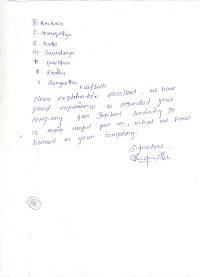 B. Archana
S. Guruprriya
S. Anitha
M. Soundarya
* pavithra
* Sindhu
S. Sangeetha
Feedback
clean explanation excellent, we have
good experience to attended your
company for Inplant training it
is more useful for us, what we have
learned in your company.
Signature